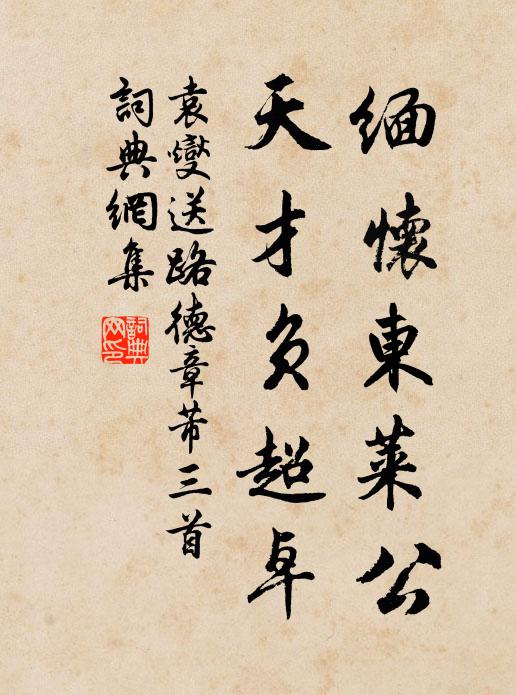 緬懷東萊公
天才負超卓
袁燮送路德章芾三首
詞典網集
詞典網印